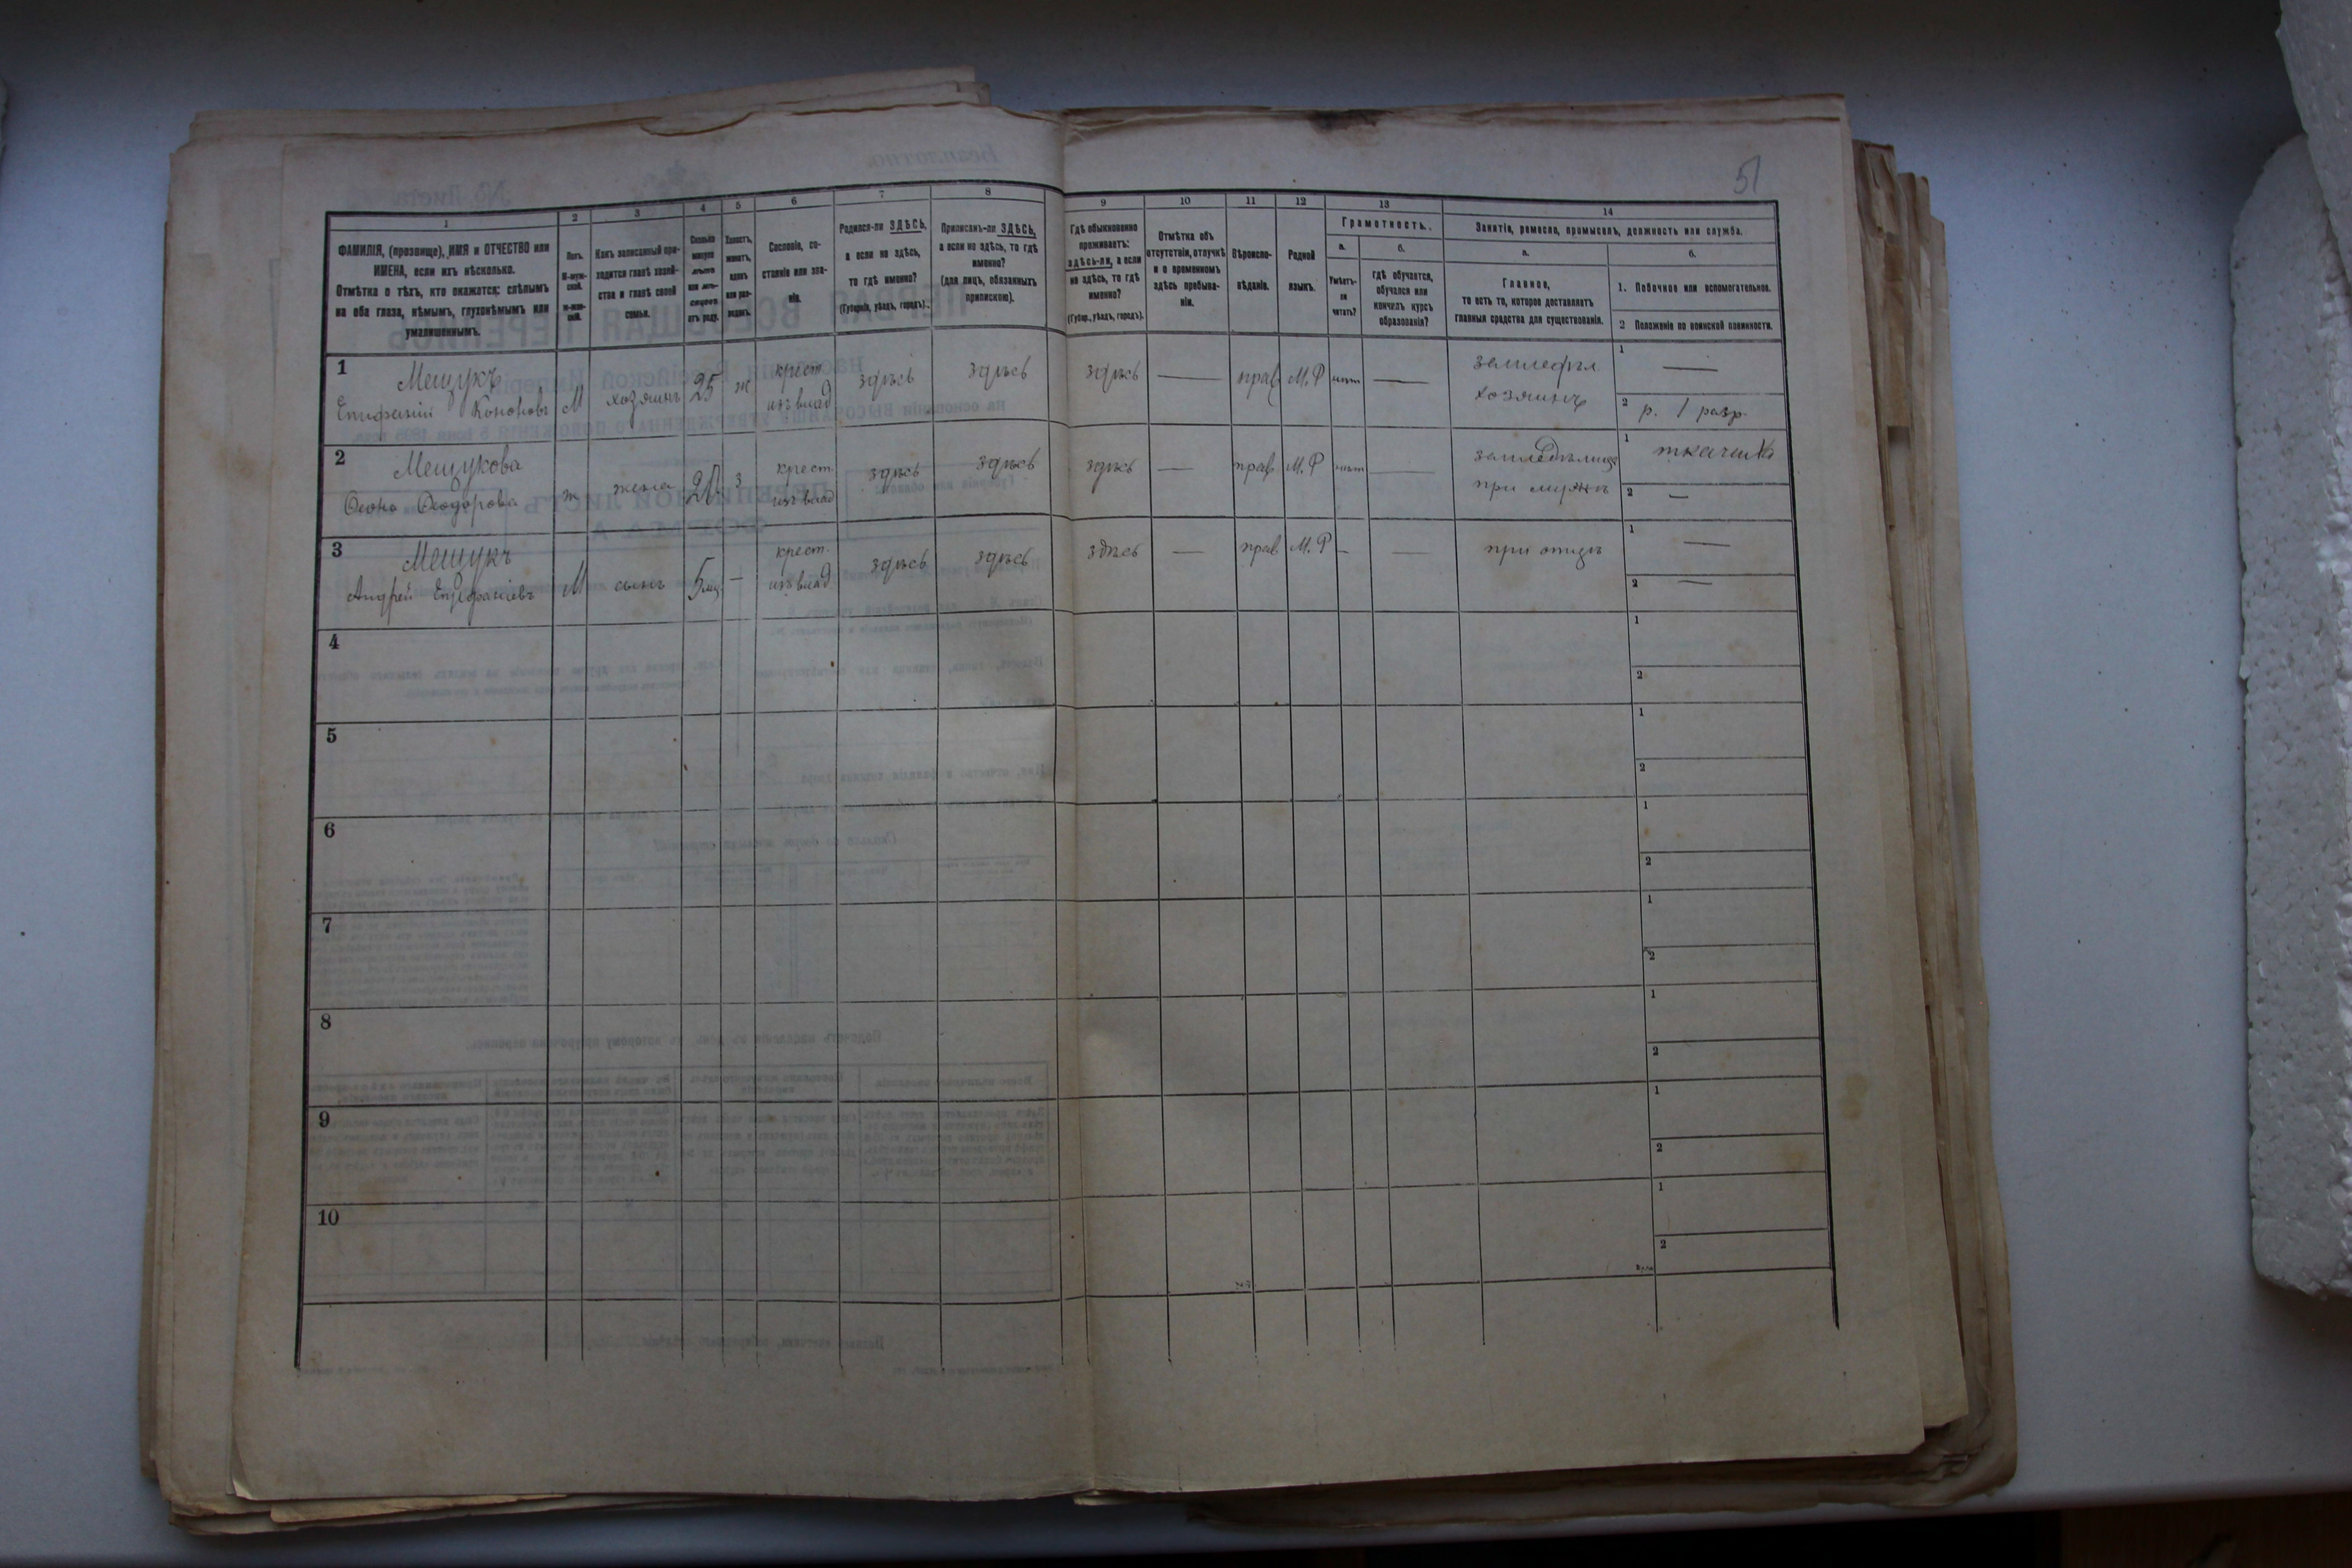 51
1
2
3
4
5
6
7
8
9
10
11
12
13
14
ФАМИЛІЯ, (прозвище), ИМЯ и ОТЧЕСТВО или
ИМЕНА, если ихъ нѣсколько.
Отмѣтка о тѣхъ, кто окажется: слѣпымъ
на оба глаза, нѣмымъ, глухонѣмымъ или
умалишеннымъ.
Полъ.
М-муж-
ской.
ж-жен-
скій.
Какъ записанный при-
ходится главѣ хозяй-
ства и главѣ своей
семьи.
Сколько
минуло
лѣтъ
или мѣ-
сяцевъ
отъ роду.
Холостъ,
женатъ,
вдовъ
или раз-
веденъ.
Сословіе, со-
стояніе или зва-
ніе.
Родился-ли ЗДѢСЬ,
а если не здѣсь,
то гдѣ именно?
(Губернія, уѣздъ, городъ).
Приписанъ-ли ЗДѢСЬ,
а если не здѣсь, то гдѣ
именно?
(для лицъ, обязанныхъ
припискою).
Гдѣ обыкновенно
проживаетъ:
здѣсь-ли, а если
не здѣсь, то гдѣ
именно?
(Губер., уѣздъ, городъ).
Отмѣтка объ
отсутствіи, отлучкѣ
и о временномъ
здѣсь пребыва-
ніи.
Вѣроиспо-
вѣданіе.
Родной
языкъ.
Грамотность.
а.
Умѣетъ-
ли
читать?
б.
гдѣ обучается,
обучался или
кончилъ курсъ
образованія?
Занятіе, ремесло, промыселъ, должность или служба.
а.
Главное,
то есть то, которое доставляетъ
главныя средства для существованія.
б.
1. Побочное или вспомогательное.
2 Положеніе по воинской повинности.
1 Мещукъ
Епифаній Кононовъ М хозяинъ 25 ж крест. изъ влад здѣсь здѣсь здѣсь — прав М.Р нѣтъ — земледѣл хозяинъ 1 —
2 р. 1 разр.
2 Мещукова
Ѳеодорова ж жена з крест. изъ влад здѣсь здѣсь здѣсь — прав М.Р нѣтъ — при мужѣ 1
2 —
3 Мещукъ
Андрей Епифаніевъ М сынъ 5 мц. — крест. изъ влад здѣсь здѣсь здѣсь — прав М.Р — — при отцѣ 1 —
2 —
4 1
2
5 1
2
6 1
2
7 1
2
8 1
2
9 1
2
10 1
2